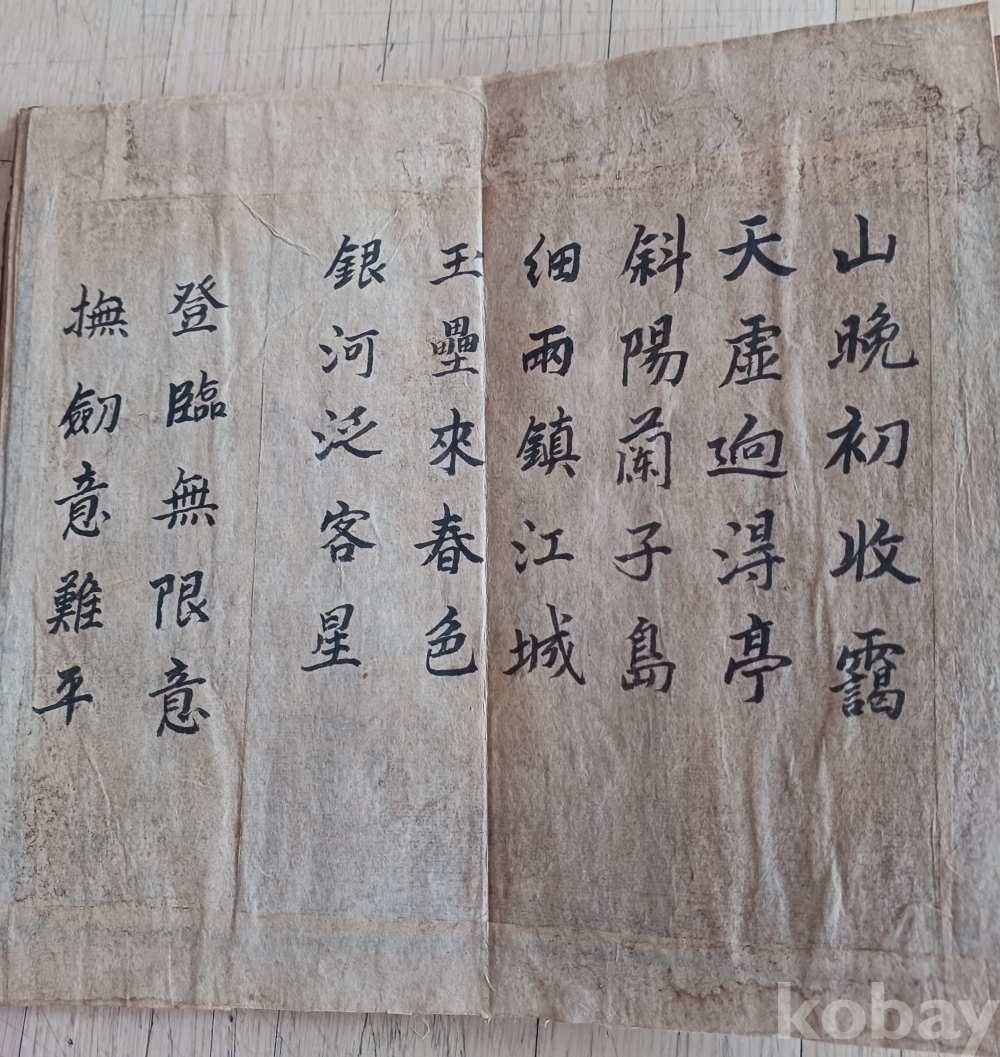 山晩初收靄
天虛逈淂亭
斜陽蘭子島
細雨鎮江城
玉壘來春色
銀河泛客星
登臨無限意
撫劒意難平
kobay